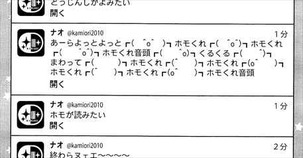 どうじんしがよみたい
開く
ナオ @kamiori2010 1分
あーらよっとよっと┏( ＾o＾ )┓ホモくれ┏( ＾o＾)┓ホモくれ
┏( ＾o＾)┓ホモくれ音頭┏(＾o )┓くるくる┏( )┓
まわって┏( )┓ホモくれ┏( )┓ホモくれ┏(o＾ )┓ホ
モくれ┏( ＾o＾ )┓ホモくれ┏( ＾o＾ )┓ホモくれ音頭
開く
ナオ @kamiori2010 1分
ホモが読みたい
開く
ナオ @kamiori2010 2分
終わらヌェエ〜〜〜〜